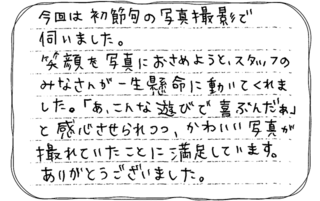 今回は初節句の写真撮影で
伺いました。
笑顔を写真におさめようと、スタッフの
みなさんが一生懸命に動いてくれま
した。「あ、こんな遊びで喜ぶんだぁ」
と感心させられつつ、かわいい写真が
撮れていたことに満足しています。
ありがとうございました。